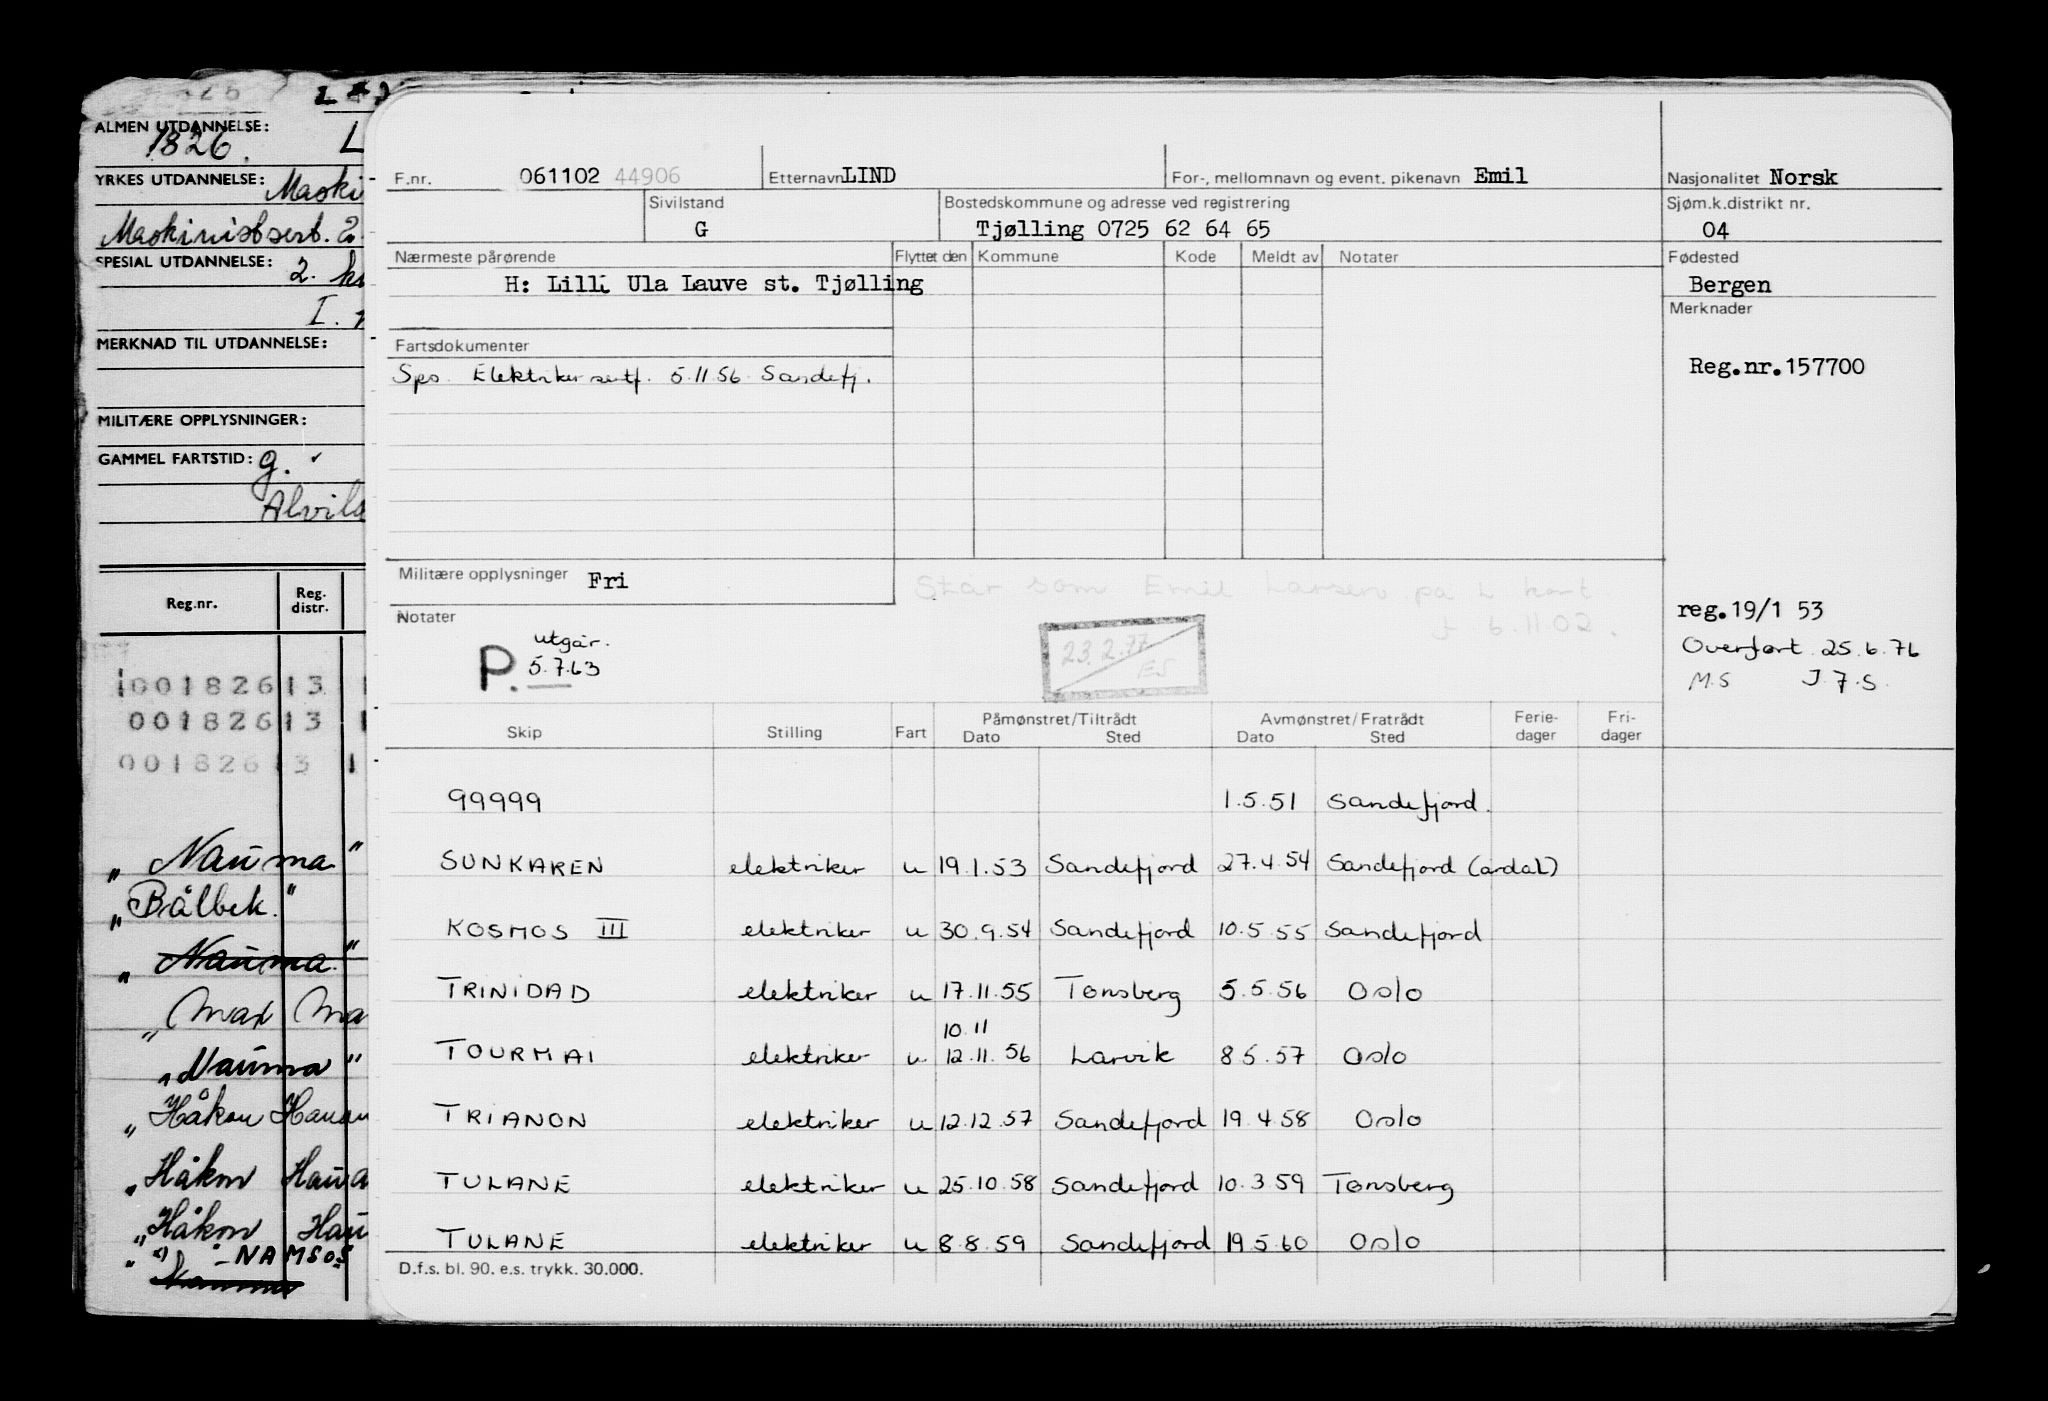 ALMEN UTDANNELSE:
1826.
YRKES UTDANNELSE: Maski
Maskinistsert. 2.
SPESIAL UTDANNELSE: 2.
I.
MERKNAD TIL UTDANNELSE:
MILITÆRE OPPLYSNINGER:
GAMMEL FARTSTID: g.
Alvild
Reg.nr. Reg. distr.
00182613
00182613
00182613
„Nauma"
„Bålbek."
„Nauma."
„Max Ma
„Nauma"
„Håkon Hauan
„Håkon Haua
„Håkon Hau
" " - NAMSOS
Nauma
F.nr. 061102 44906 Etternavn LIND For-, mellomnavn og event. pikenavn Emil Nasjonalitet Norsk
Sivilstand G Bostedskommune og adresse ved registrering Tjølling 0725 62 64 65 Sjøm.k.distrikt nr. 04
Nærmeste pårørende Flyttet den Kommune Kode Meldt av Notater Fødested
H: Lilli Ula Lauve st. Tjølling Bergen
Merknader
Fartsdokumenter
Sps. Elektriker sertf. 5.11.56 Sandefj. Reg.nr.157700
Militære opplysninger Fri
Står som Emil Larsen på L kort
f 6.11.02.
Notater
utgår.
P. 5.7.63
23.2.77
ES
reg.19/1 53
Overført 25.6.76
M.S J.F.S.
Skip Stilling Fart Påmønstret/Tiltrådt Avmønstret/Fratrådt Ferie-dager Fri-dager
Dato Sted Dato Sted
99999 1.5.51 Sandefjord.
SUNKAREN elektriker u 19.1.53 Sandefjord 27.4.54 Sandefjord (ardal)
KOSMOS III elektriker u 30.9.54 Sandefjord 10.5.55 Sandefjord
TRINIDAD elektriker u 17.11.55 Tønsberg 5.5.56 Oslo
10.11
TOURMAI elektriker u. 12.11.56 Larvik 8.5.57 Oslo
TRIANON elektriker u 12.12.57 Sandefjord 19.4.58 Oslo
TULANE elektriker u 25.10.58 Sandefjord 10.3.59 Tønsberg
TULANE elektriker u 8.8.59 Sandefjord 19.5.60 Oslo
D.f.s. bl. 90. e.s. trykk. 30.000.